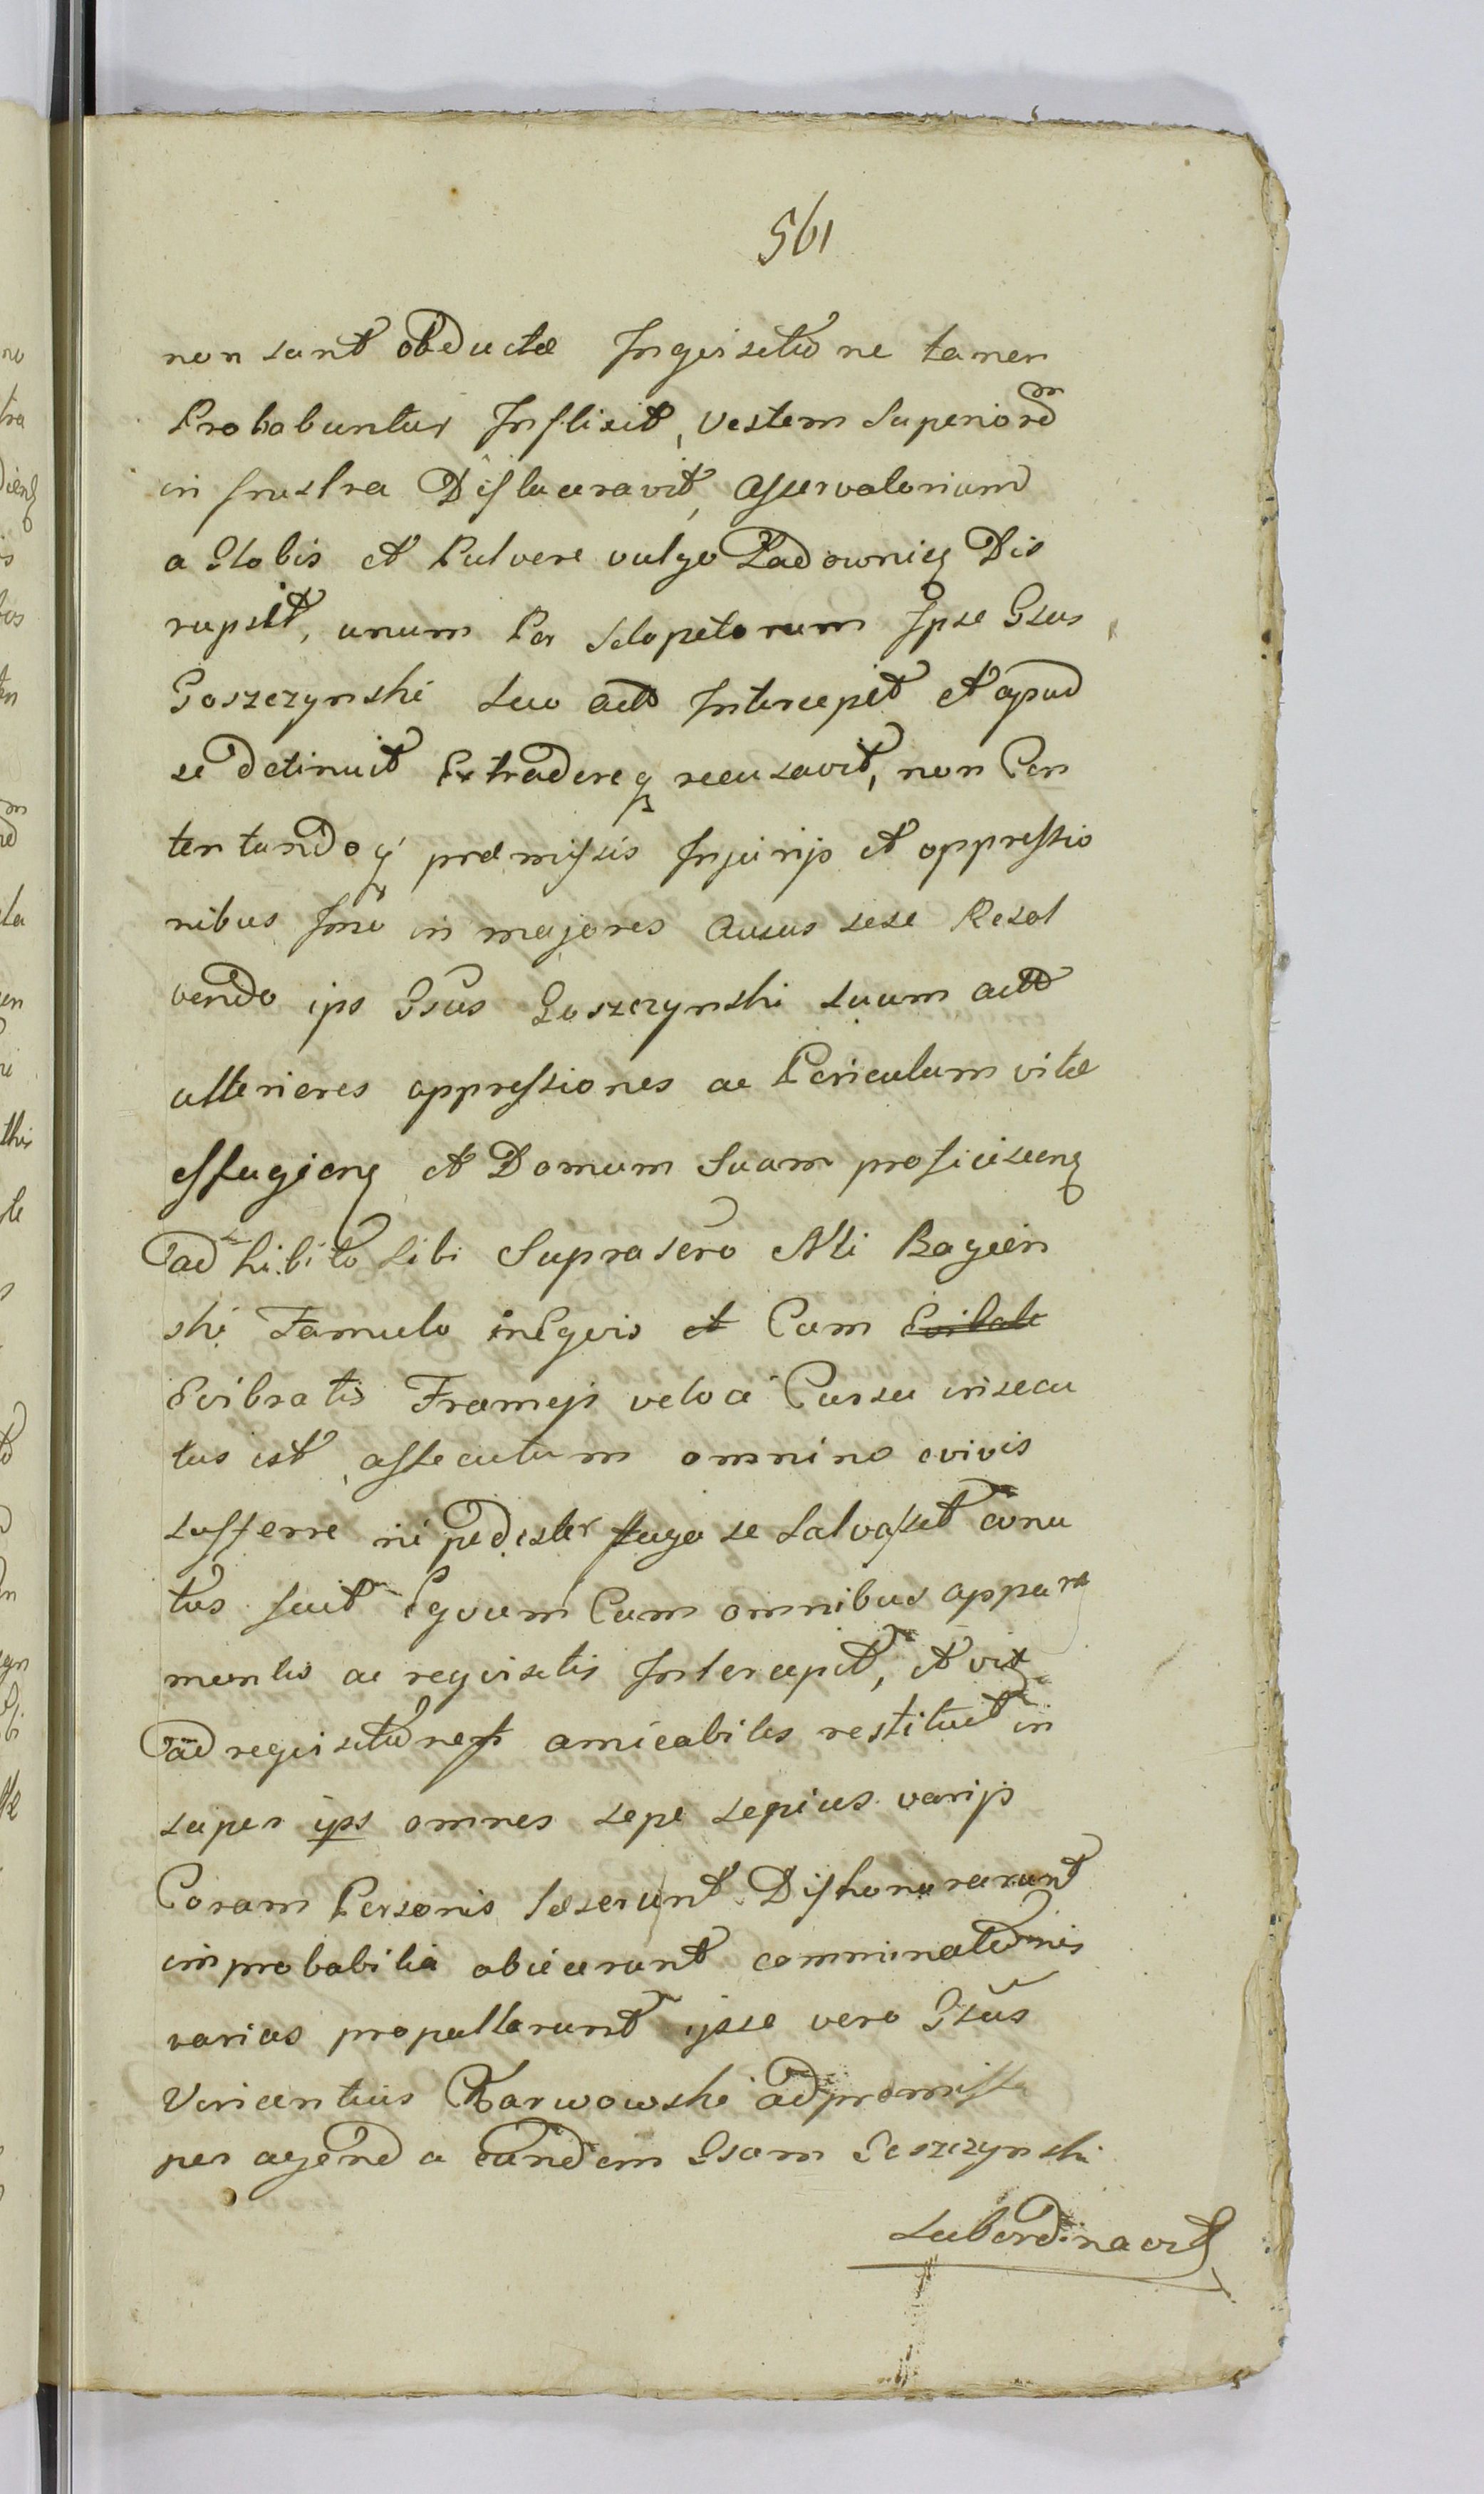 561
non sunt obductæ Inqvisitõne tamen
Probabuntur Inflixit, vestem Superiorẽm
in frustra Dislaceravit, asservatorium
a Globis et Pulvere vulgo Ładownicę Dis
rupsit, unum Par Sclopetorum Ipse Gsus
Goszczynski suo acto Intercepit et apud
se detinuit Extradereq recusavit, non Con
tentandoq præmissis Injurijs et oppressio
nibus Imo in majores Ausus sese Resol
vendo ips Gsus Goszczynski suum acto
ulteriores oppressiones ac Periculum vitæ
effugienq et Domum Suam proficiscenq
ad hibito sibi Suprascrõ Nli Bagien
ski Famulo in Eqvis et Cum Evibate
Evibratis Frameis veloci Cursu insecu
tus est, assecutum omnino evivis
sufferre ni pedester fuga se salvasset conu
tus fuit Eqvum Cum omnibus appara
mentis ac reqvisitis Intercepit, et vix
ad reqvisitõnes amicabiles restituit in
super ips omnes sepe sepius varijs
Coram Personis læserunt Dishonorarunt
improbabilia obiecerunt comminatõnes
varias propullarunt ipse vero Gsus
Vincentius Karwowski ad premissa
per agenda eundem Gsum Goszczynski
subordinavit